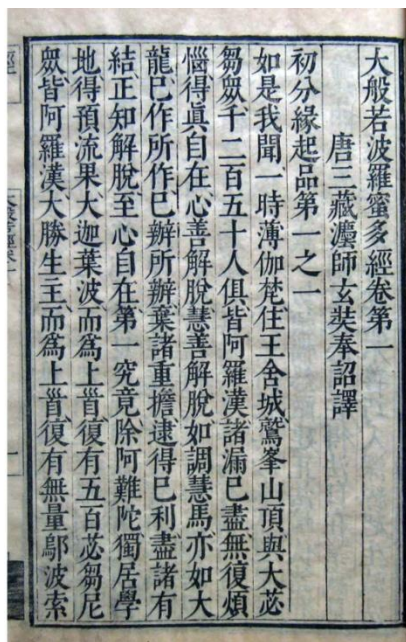 大般若波羅蜜多經卷第一
唐三藏灋師玄奘奉詔譯
初分緣起品第一之一
如是我聞一時薄伽梵住王舍城鷲峯山頂與大苾
芻眾千二百五十人俱皆阿羅漢諸漏已盡無復煩
惱得眞自在心善解脫慧善解脫如調慧馬亦如大
龍已作所作已辦所辦棄諸重擔逮得己利盡諸有
結正知解脫至心自在第一究竟除阿難陀獨居學
地得預流果大迦葉波而爲上首復有五百苾芻尼
眾皆阿羅漢大勝生主而爲上首復有無量鄔波索